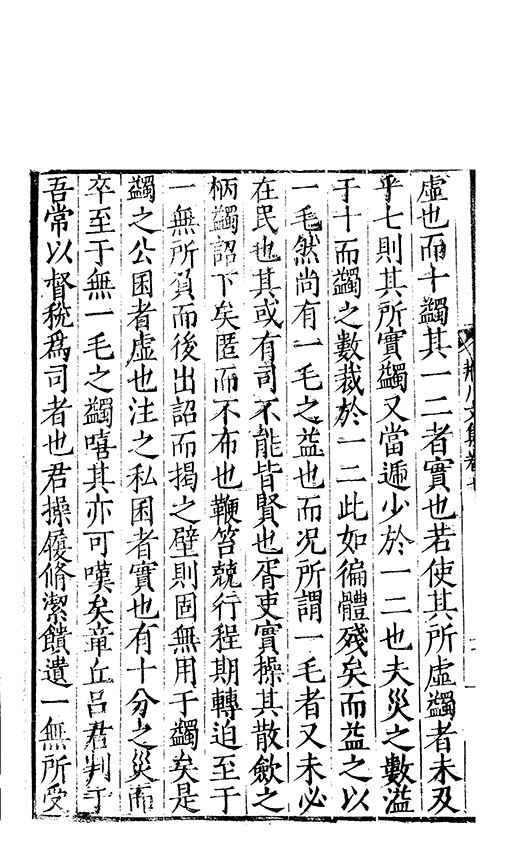 虛也而十蠲其一二者實也若使其所虛蠲者未及
乎七則其所實蠲又當遞少於一二也夫災之數溢
于十而蠲之數裁於一二此如徧體殘矣而益之以
一毛然尚有一毛之益也而况所謂一毛者又未必
在民也其或有司不能皆賢也胥吏實操其散歛之
柄蠲詔下矣匿而不布也鞭笞兢行程期轉迫至于
一無所負而後出詔而揭之壁則固無用于蠲矣是
蠲之公困者虛也注之私困者實也有十分之災而
卒至于無一毛之蠲嘻其亦可嘆矣章丘吕君判于
吾常以督稅爲司者也君操履脩潔饋遺一無所受
荆川文集卷十